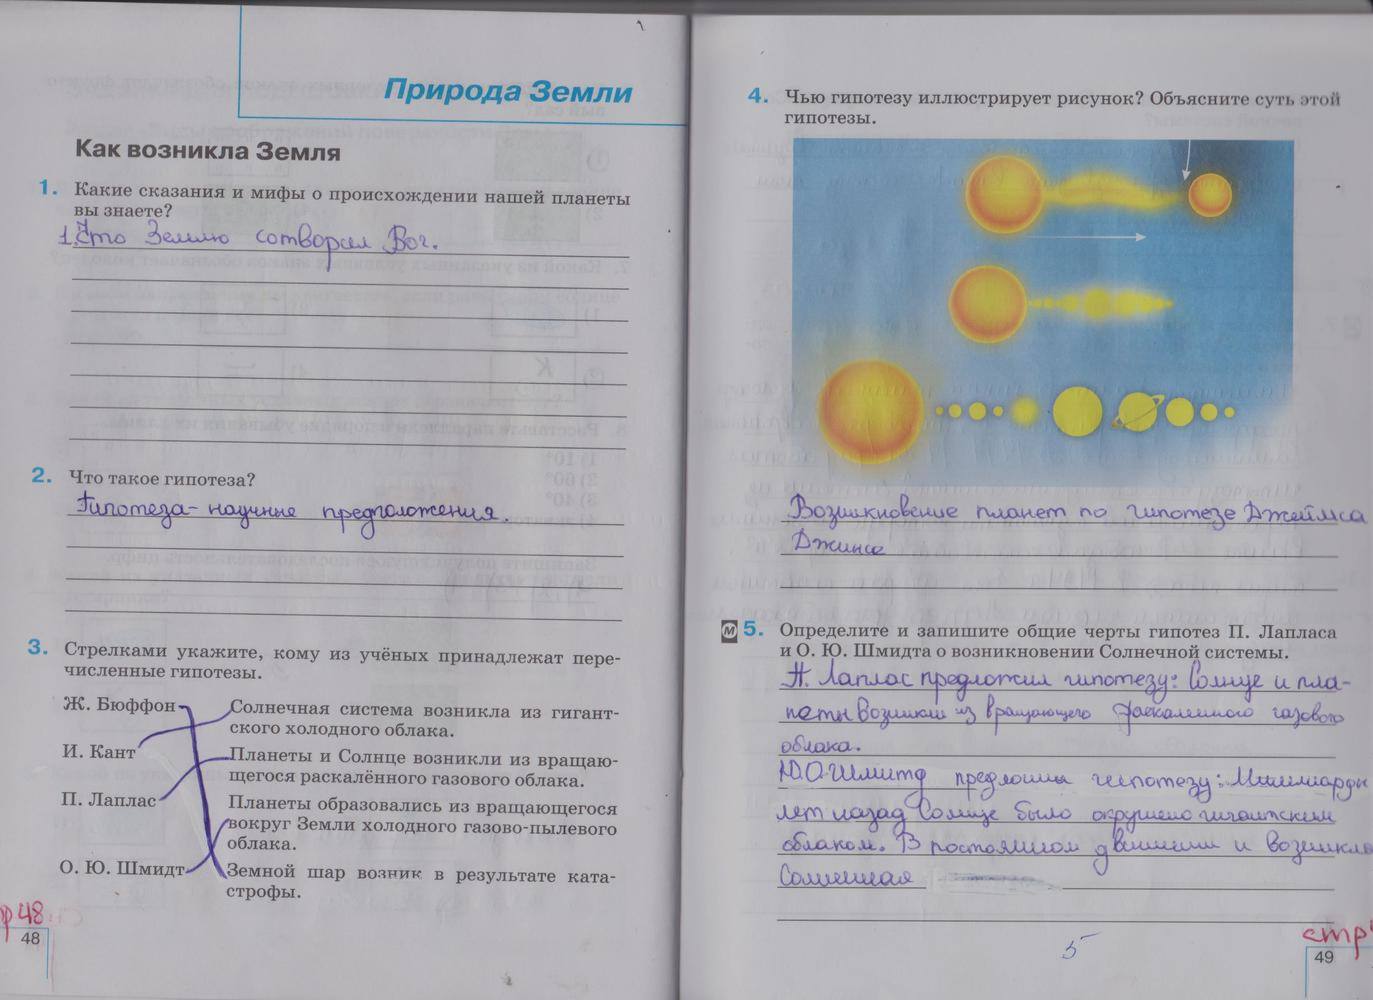 Природа Земли
Как возникла Земля
1. Какие сказания и мифы о происхождении нашей планеты
вы знаете?
1. Что Землю сотворил Бог.
2. Что такое гипотеза?
Гипотеза- научные предположения.
3. Стрелками укажите, кому из учёных принадлежат пере-
численные гипотезы.
Ж. Бюффон
И. Кант
П. Лаплас
О. Ю. Шмидт
Солнечная система возникла из гигант-
ского холодного облака.
Планеты и Солнце возникли из вращаю-
щегося раскалённого газового облака.
Планеты образовались из вращающегося
вокруг Земли холодного газово-пылевого
облака.
Земной шар возник в результате ката-
строфы.
р 48
48
4. Чью гипотезу иллюстрирует рисунок? Объясните суть этой
гипотезы.
Возникновение планет по гипотезе Джеймса
Джинса
М 5. Определите и запишите общие черты гипотез П. Лапласа
и О. Ю. Шмидта о возникновении Солнечной системы.
П. Лаплас предложил гипотезу: Солнце и пла-
неты возникли из вращающего раскаленного газового
облака.
Ю.О.Шмитд предложил гипотезу: Миллиарды
лет назад Солнце было окружено гигантским
облаком. В постоянном движении и возникла
Солнечная
5
стр
49